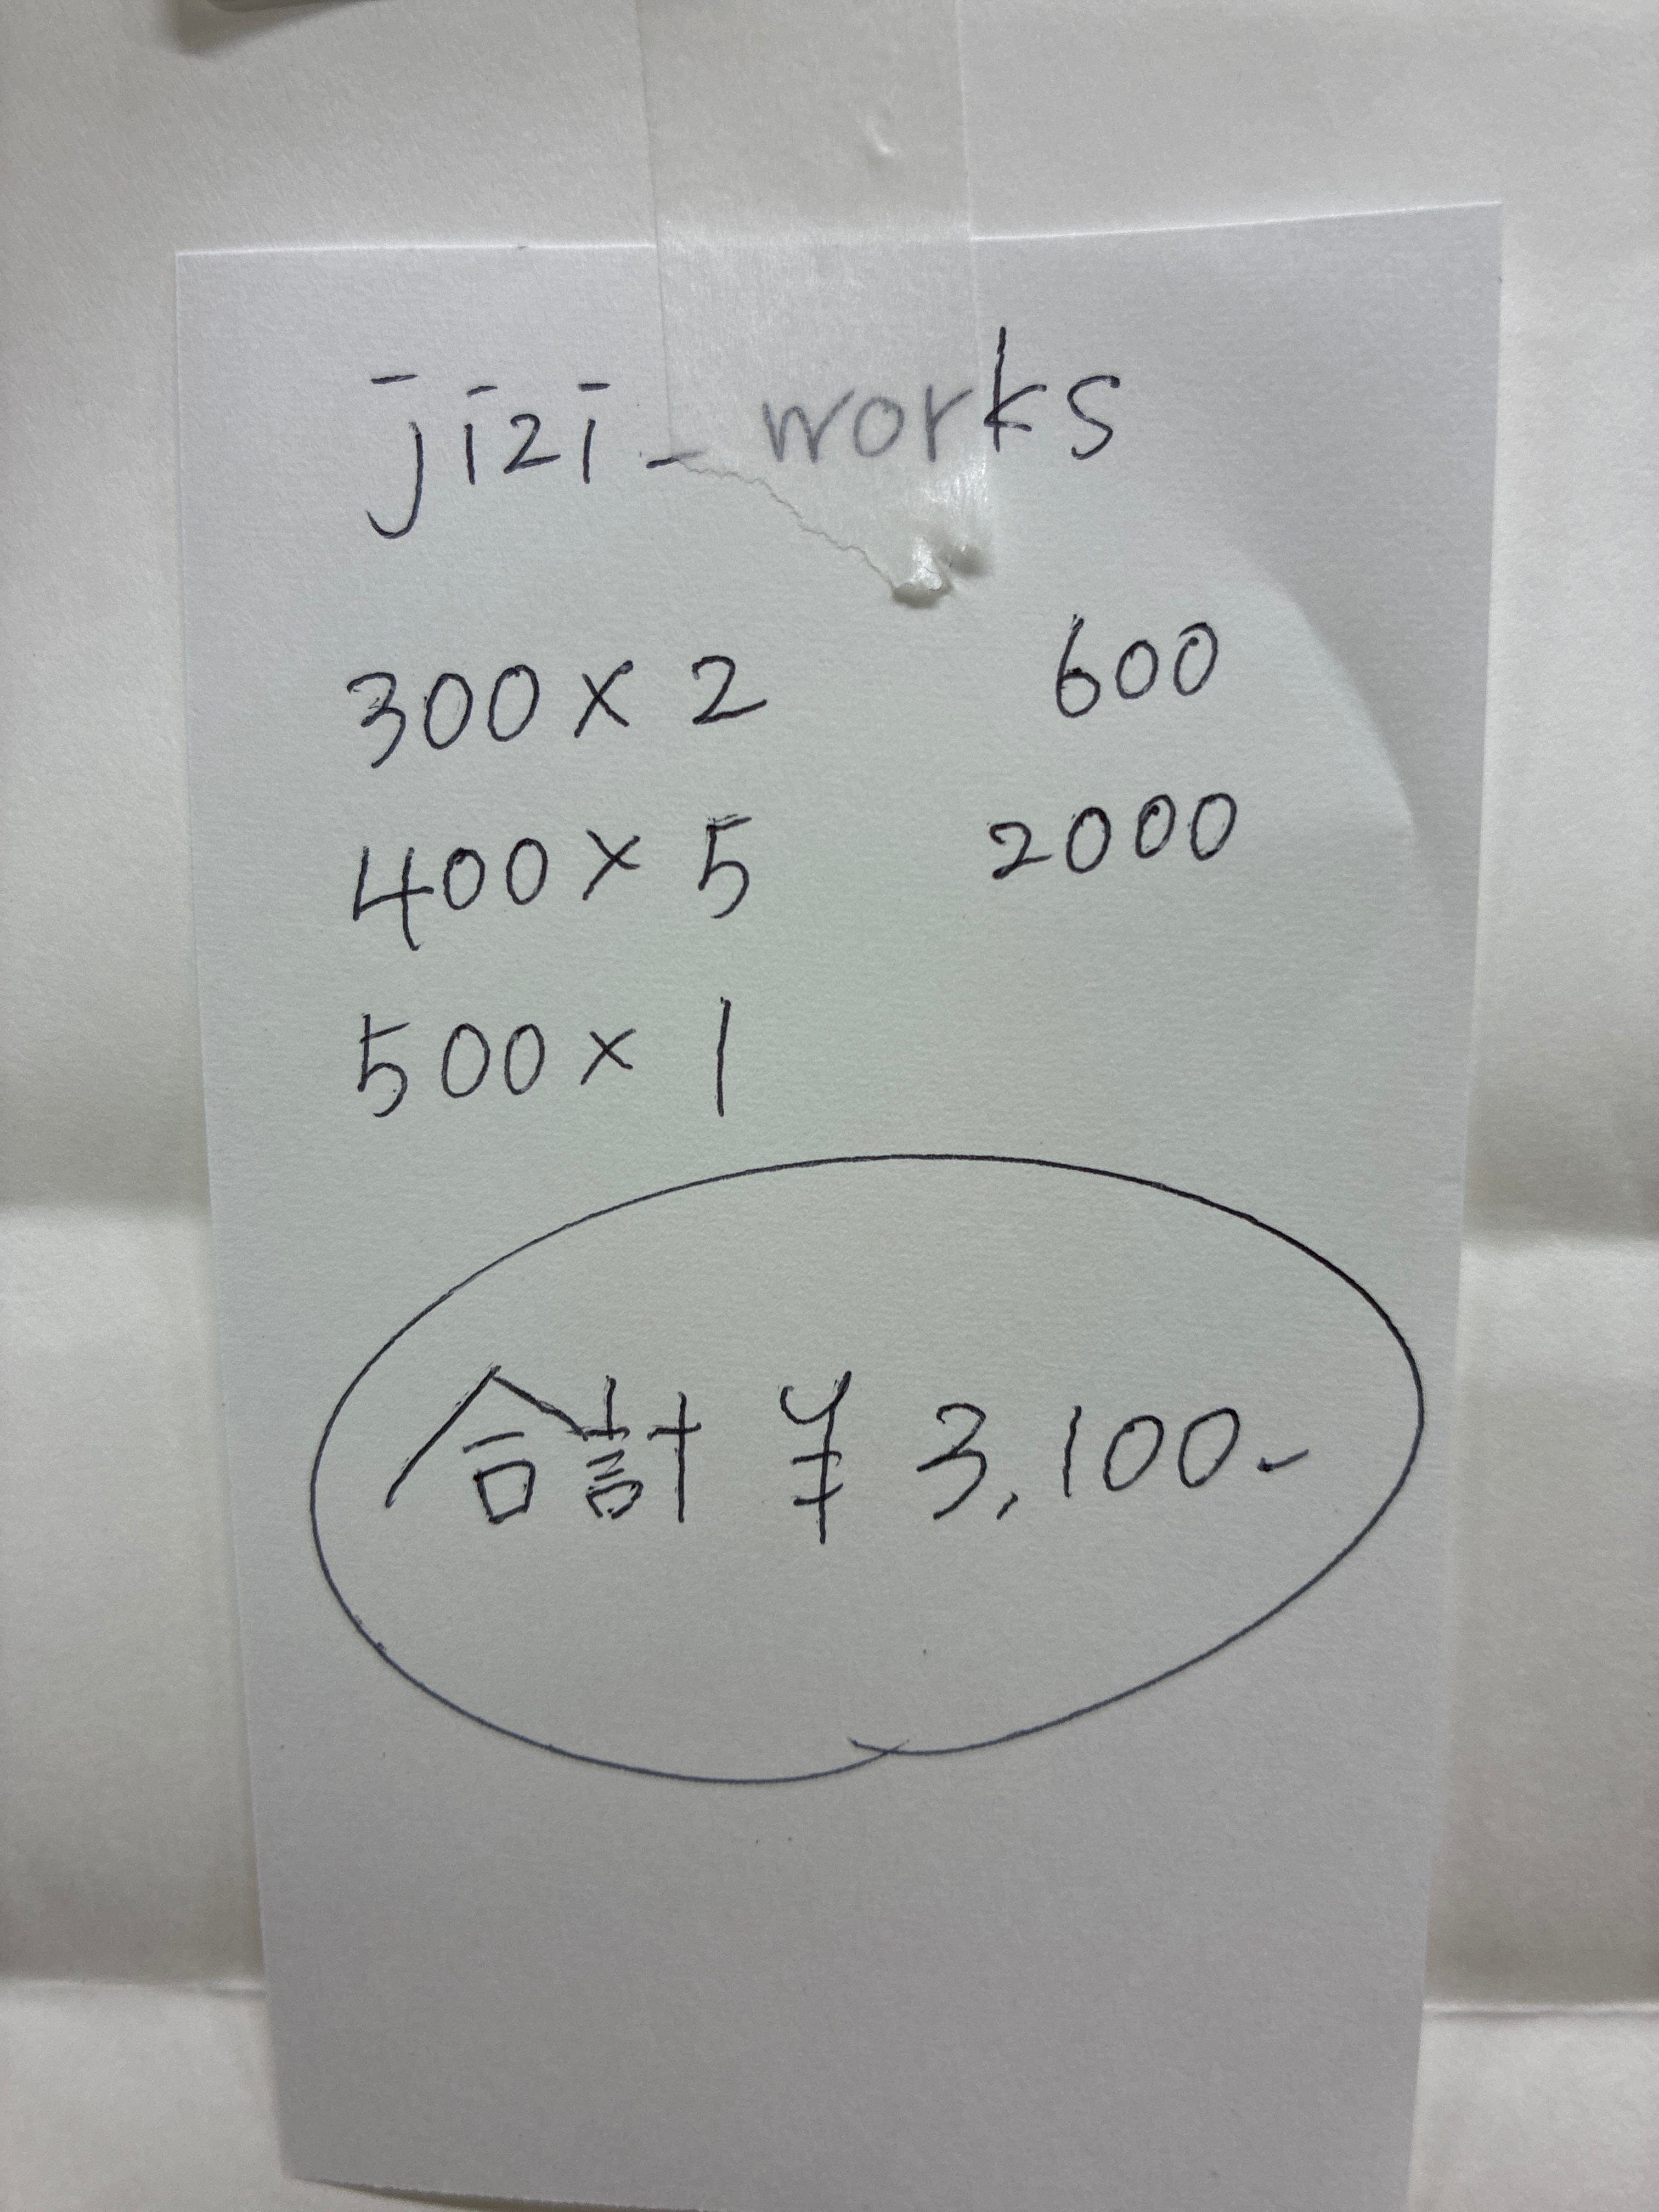 jizi_works
300 × 2 600
400 × 5 2000
500 × 1
合計 ¥ 3,100-